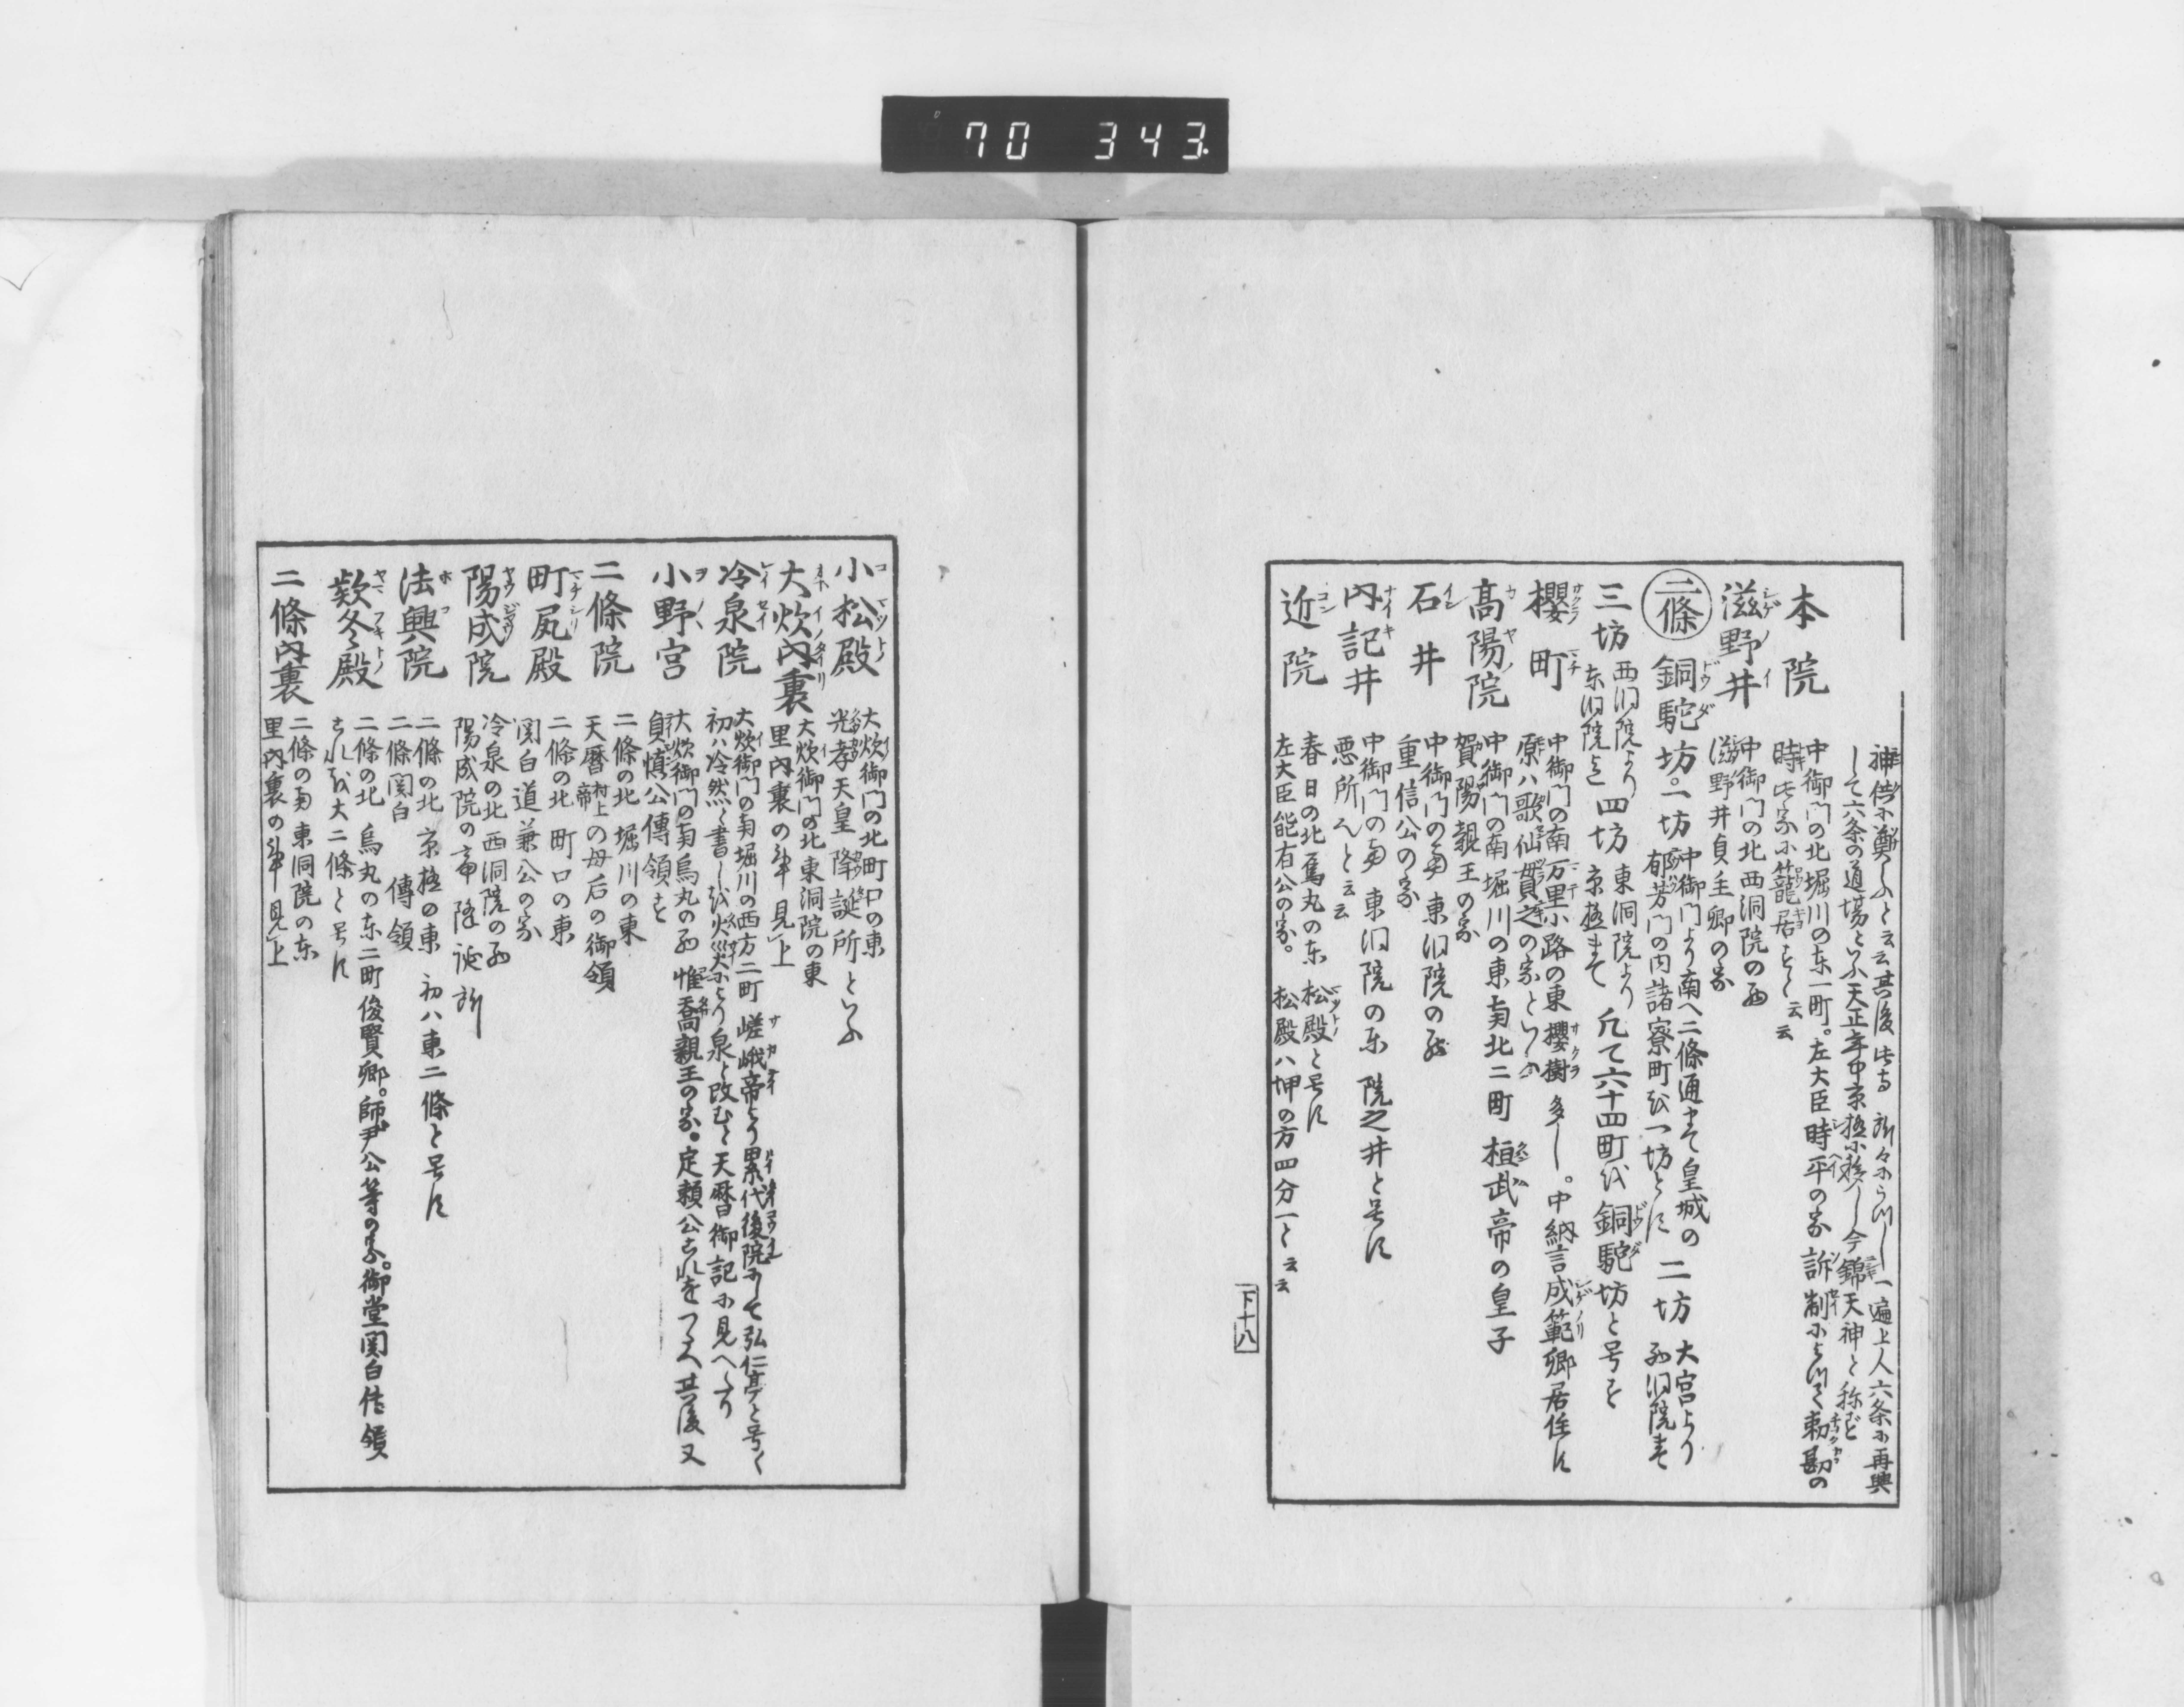 70 343
神供に奠しふと云云其後此寺所々にうつし一遍上人六条に再興
して六条の道場といふ天正年中京極に移し今錦天神と称ず
本院
中御門の北堀川の东一町。左大臣時平の家訴制によつて勅勘の
時此家に籠居すと云云
滋野井
中御門の北西洞院の西
滋野井貞主卿の家
二條
銅駝坊。
一坊
中御門より南へ二條通まて皇城の
郁芳門の内諸寮町を一坊とす
二坊
大宮より
西洞院まて
三坊
西洞院より
东洞院まて
四坊
東洞院より
京極まて
凡て六十四町を銅駝坊と号す
櫻町
中御門の南万里小路の東櫻樹多し。中納言成範卿居住す
原ハ歌仙貫之の家といふ
高陽院
中御門の南堀川の東南北二町桓武帝の皇子
賀陽親王の家
石井
中御門の南東洞院の西
重信公の家
内記井
中御門の南東洞院の东院之井と号す
悪所へと云云
近院
春日の北烏丸の东松殿と号す
左大臣能有公の家。松殿ハ坤の方四分一と云云
下十八
小松殿
大炊御門の北町口の東
光孝天皇降誕所といふ
大炊内裏
大炊御門の北東洞院の東
里内裏の部見上
冷泉院
大炊御門の南堀川の西方二町嵯峨帝より累代後院にして弘仁亭と号く
初ハ冷然と書しを火災により泉と改むと天暦御記に見へたり
小野宮
大炊御門の南烏丸の西惟喬親王の家。定頼公これをつたへ其後又
貞慎公傳領す
二條院
二條の北堀川の東
天暦帝村上の母后の御領
町尻殿
二條の北町口の東
関白道兼公の家
陽成院
冷泉の北西洞院の西
陽成院の帝降誕所
法興院
二條の北京極の東初ハ東二條と号す
二條関白傳領
歎冬殿
二條の北烏丸の东二町俊賢卿。師尹公等の家。御堂関白傳領
これを大二條と号す
二條内裏
二條の南東洞院の东
里内裏の部見上